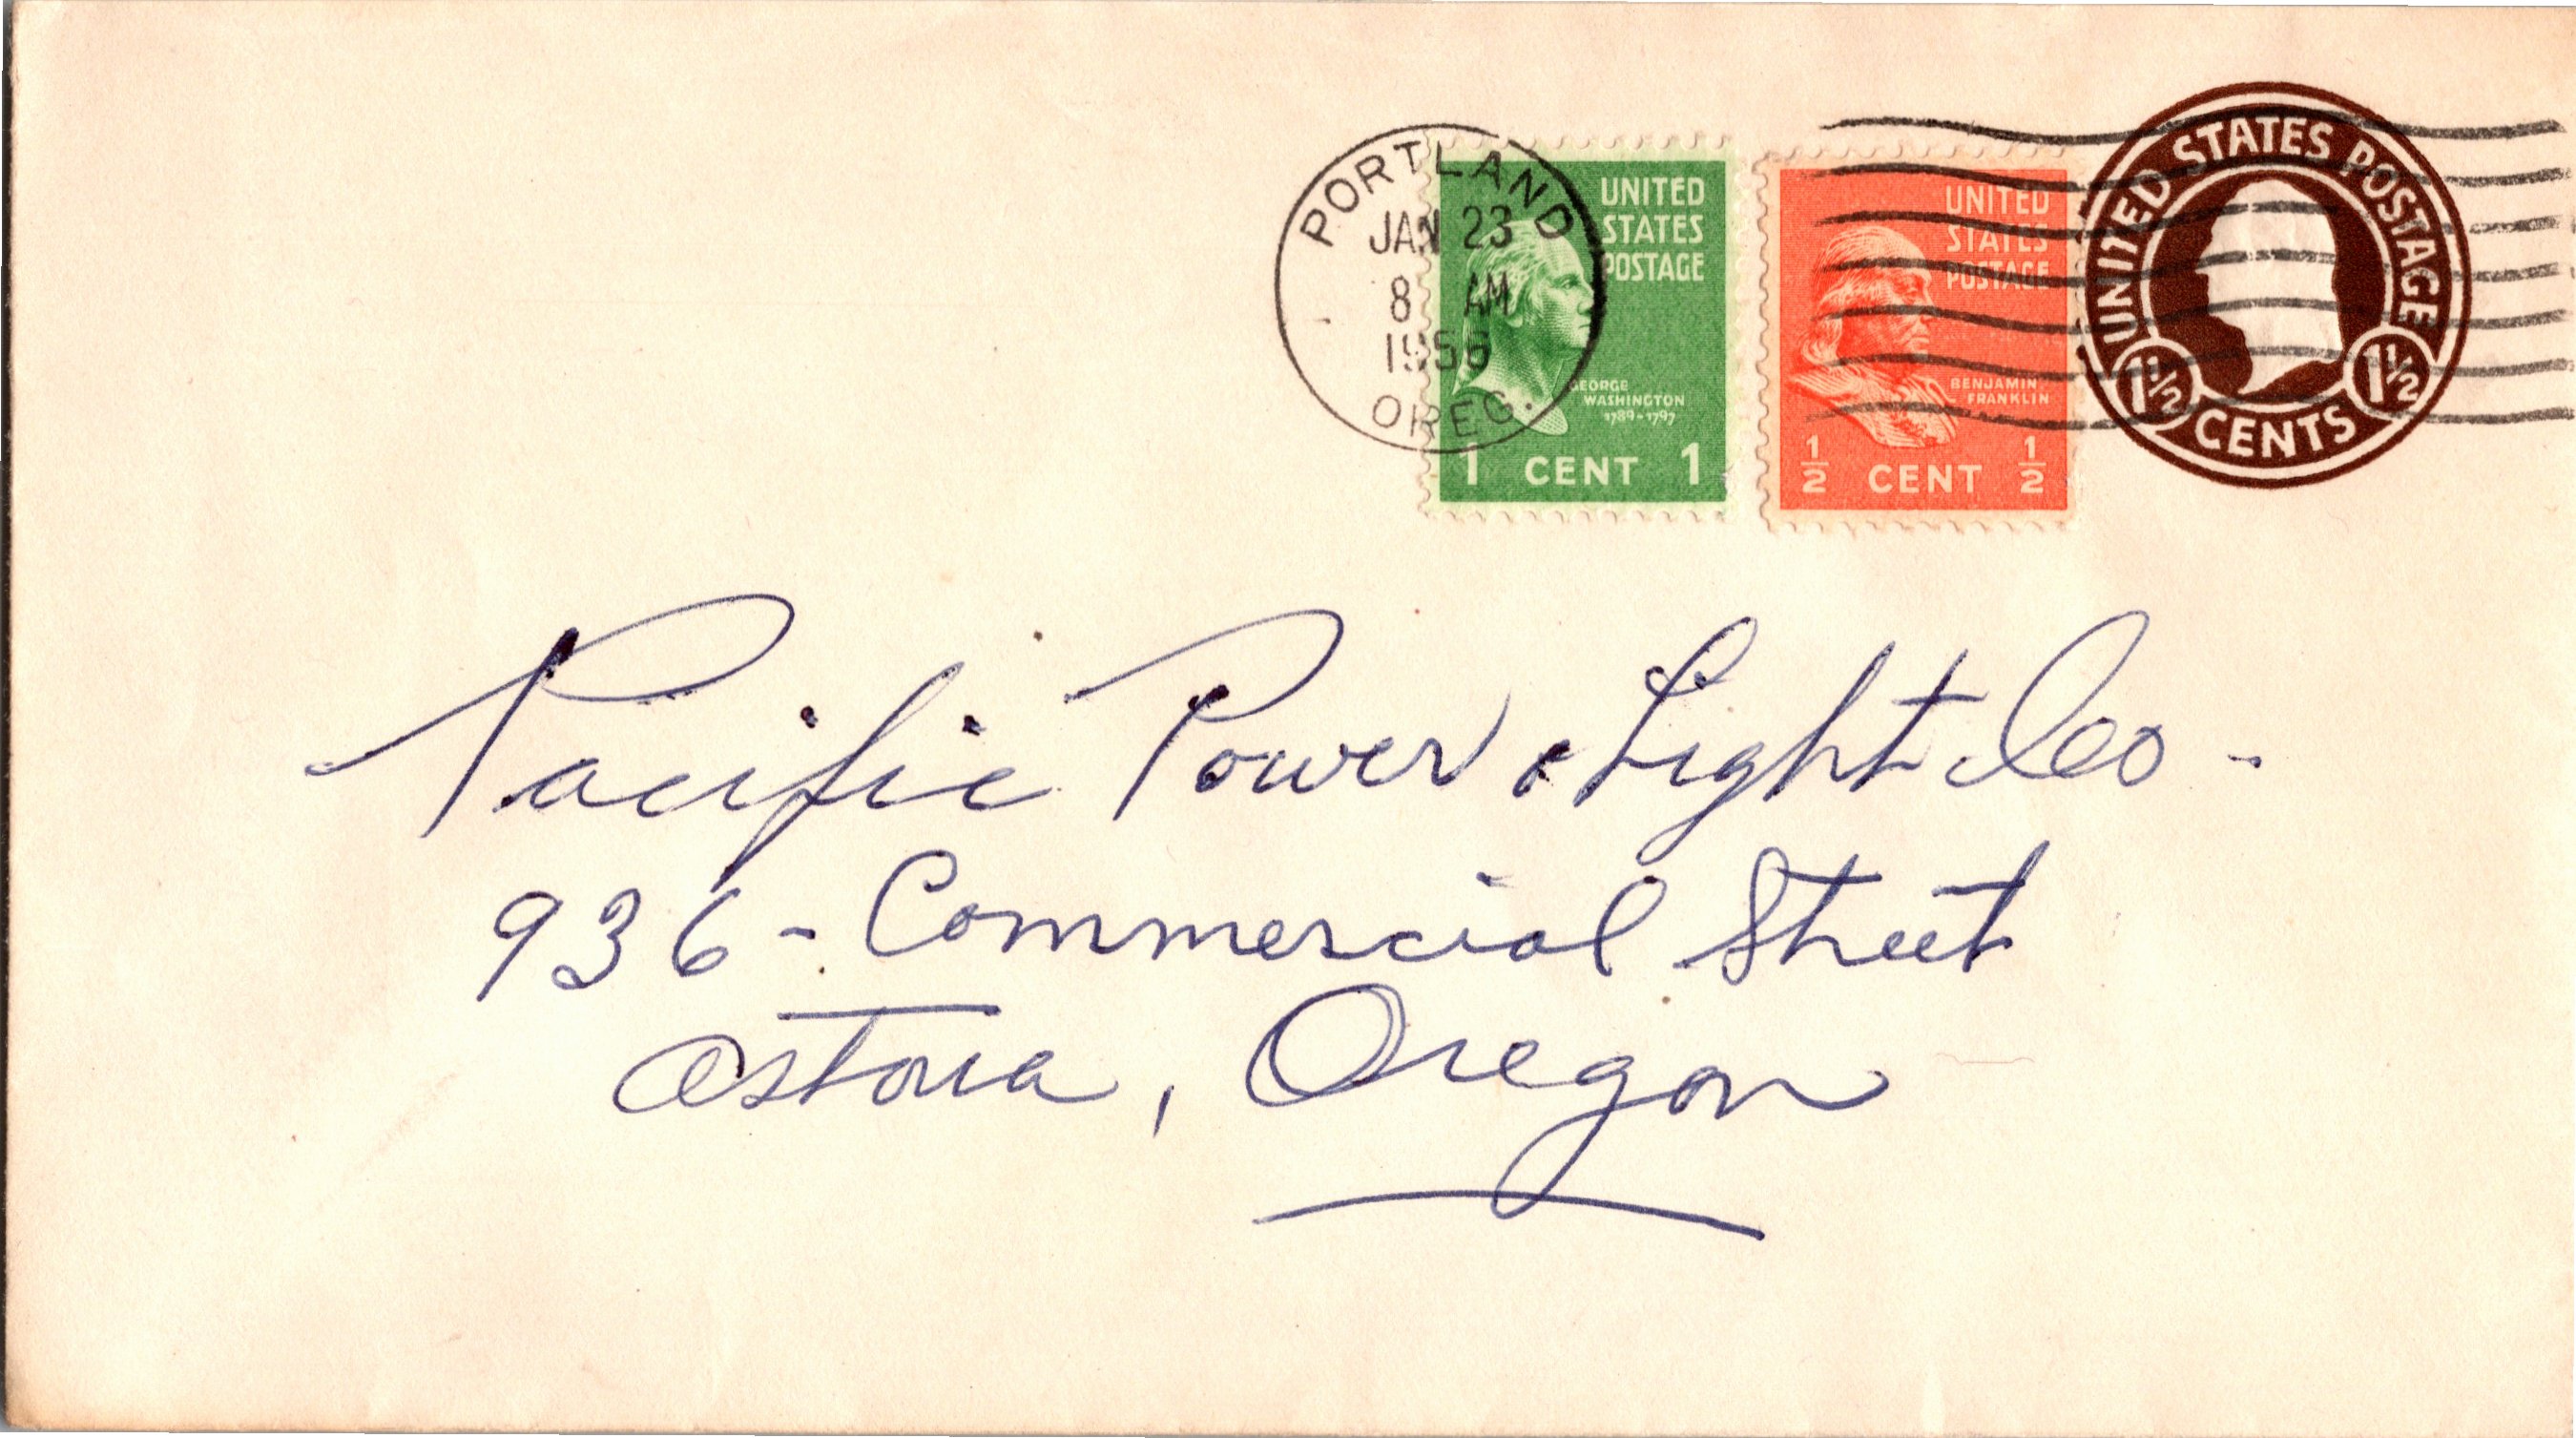 PORTLAND
JAN 23
8 AM
1956
OREG.
UNITED
STATES
POSTAGE
GEORGE
WASHINGTON
1789-1797
1 CENT 1
UNITED
STATES
POSTAGE
BENJAMIN
FRANKLIN
1/2 CENT 1/2
UNITED STATES POSTAGE
1 1/2 1 1/2
CENTS
Pacific Power & Light Co -
936 - Commercial Street
Astoria, Oregon